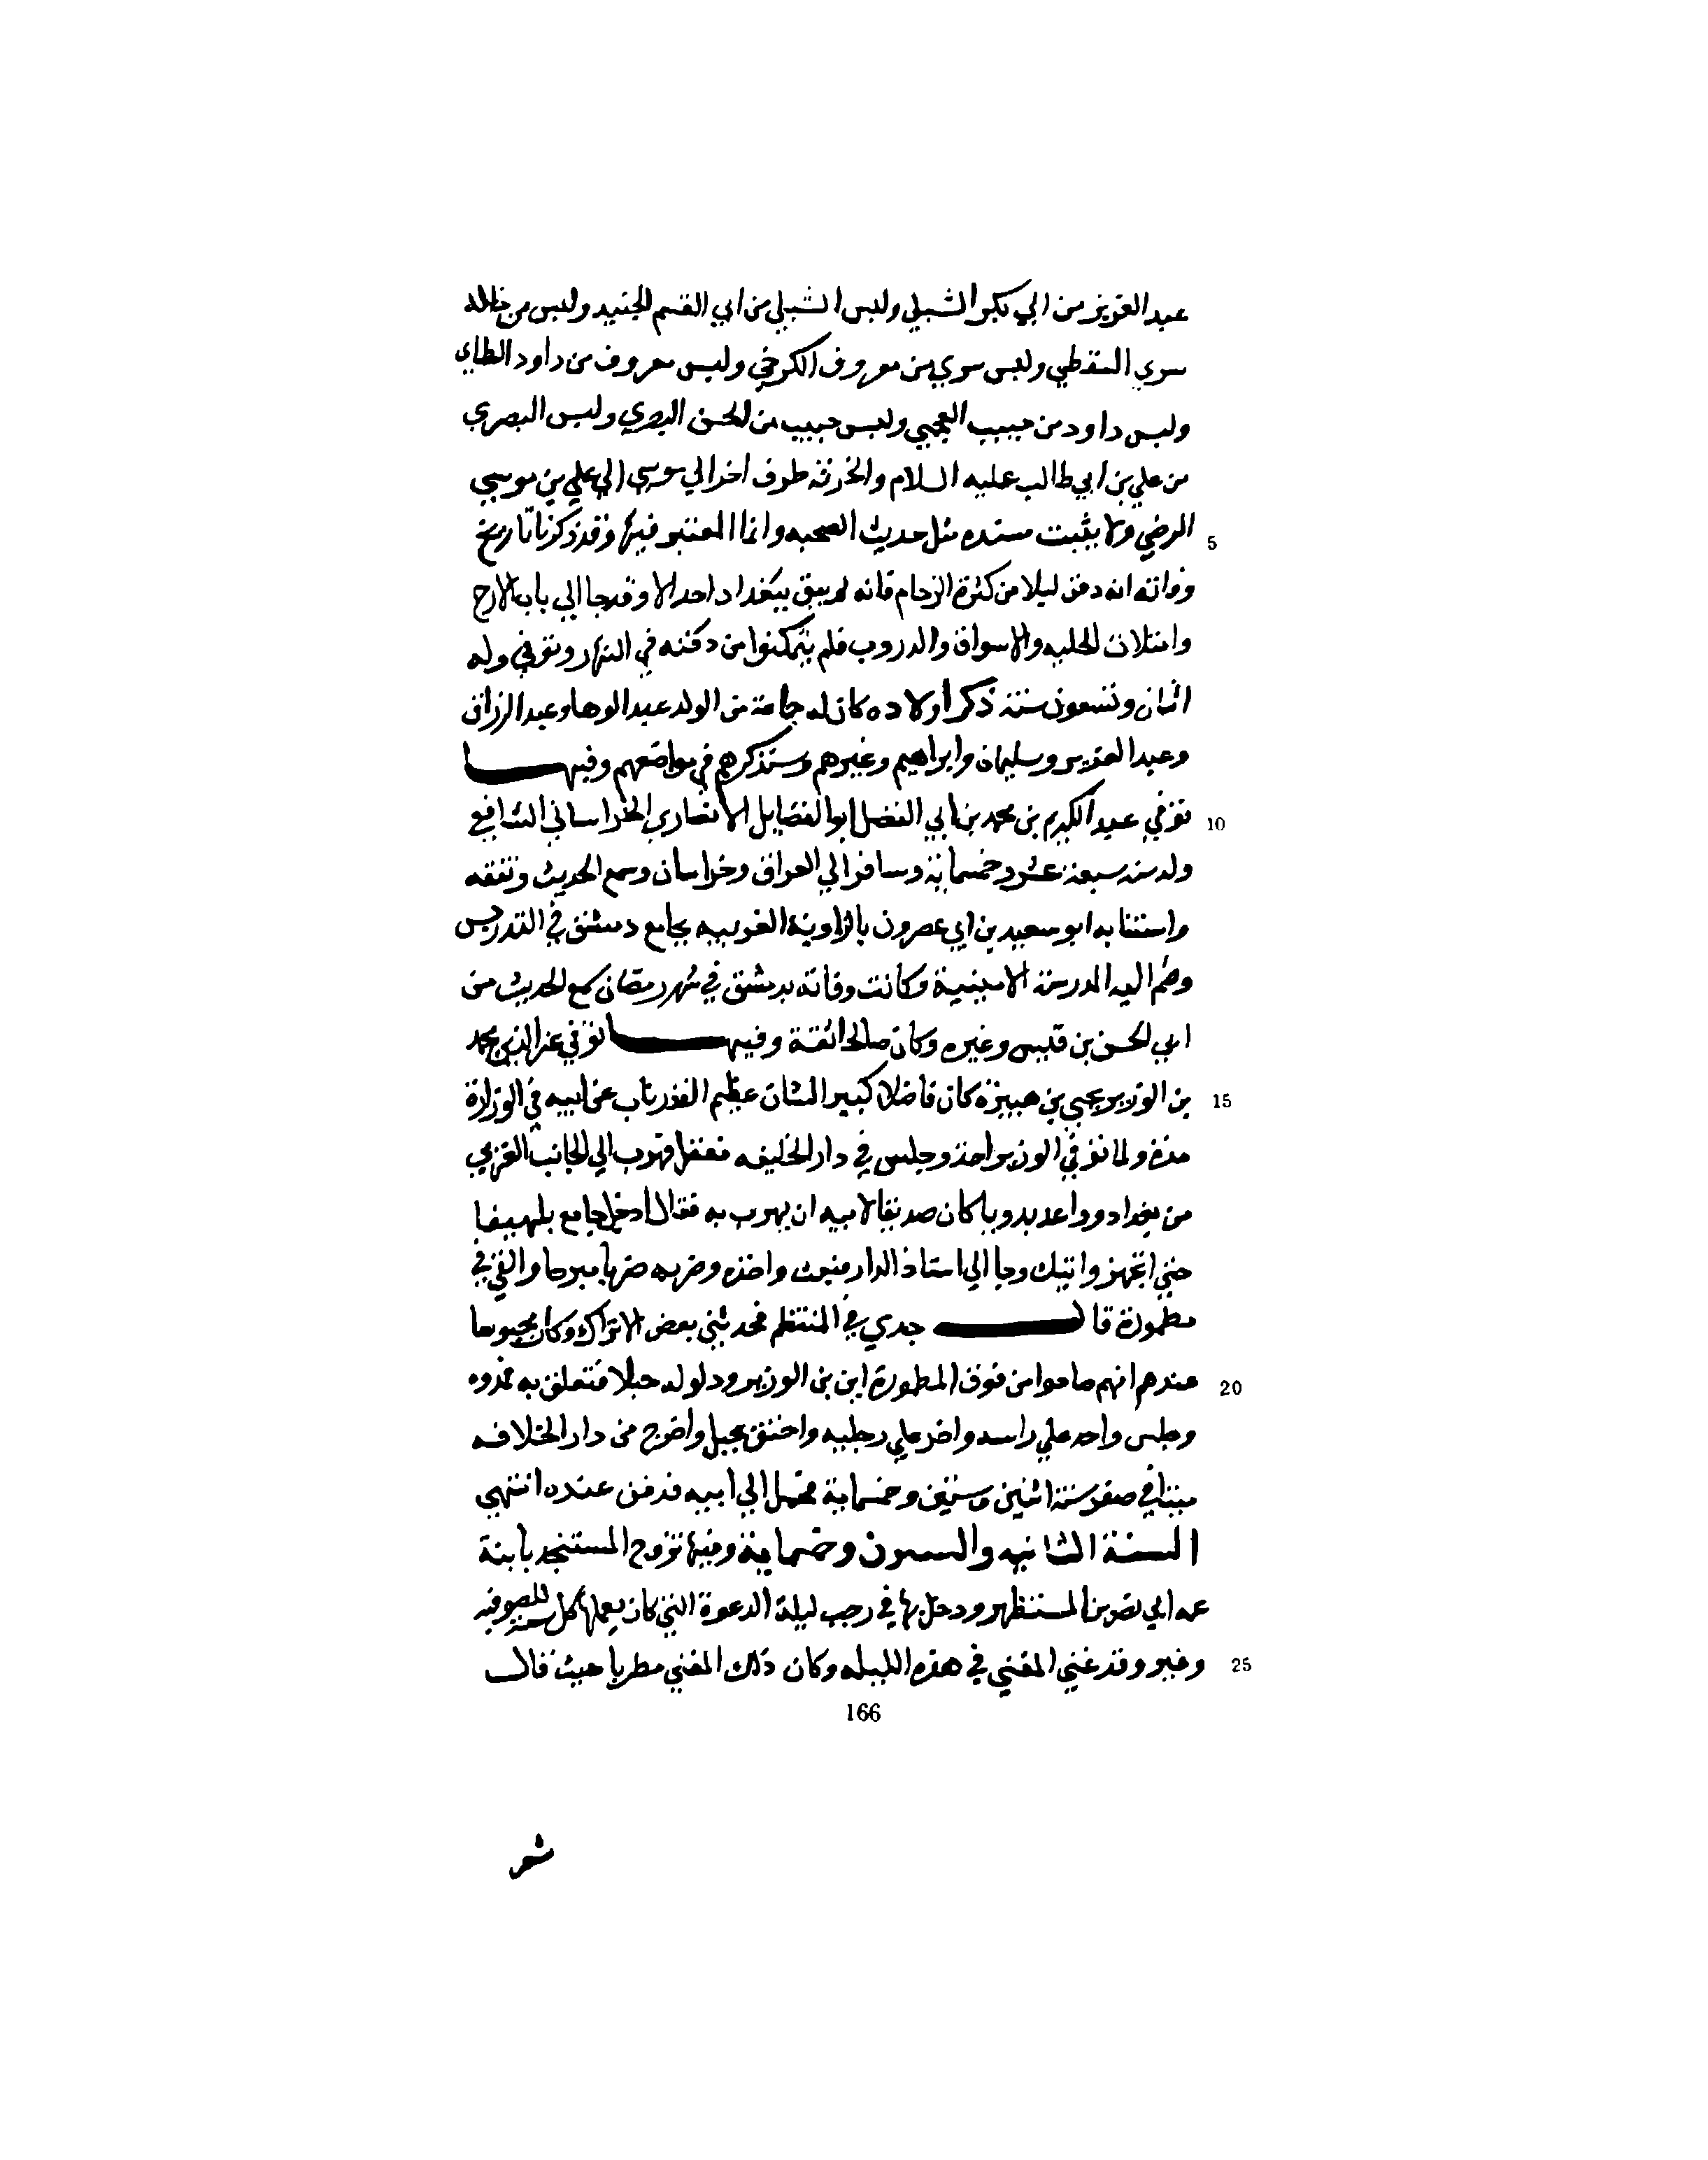 عبد العزيز من ابي بكر الشبلي ولبس الشبلي من ابي القسم الجنيد ولبس من خاله
سري السقطي ولبس سري من معروف الكرخي ولبس معروف من داود الطاي
ولبس داود من حبيب العجمي ولبس حبيب من الحسن البصري ولبس البصري
من علي بن ابي طالب عليه السلام والخرقه طرف اخر الي موسي الي علي بن موسي
5 الرضي ولا يثبت مسنده مثل حديث الصحبه وانما المعتبر فيها وقد ذكرنا تاريخ
وفاته انه دفن ليلا من كثرة الزحام فانه لم يبق ببغداد احد الا وقد جا الي باب الازج
وامتلات الحلبه والاسواق والدروب فلم يتمكنوا من دفنه في النهار وتوفي وله
اثنان وتسعون سنة ذكر اولاده كان له جماعة من الولد عبد الوهاب وعبد الرزاق
وعبد العزيز وسليمان وابراهيم وغيرهم وسنذكرهم في مواضعهم وفيها
10 توفي عبد الكريم بن محمد بن ابي الفضل ابو الفضايل الانصاري الخراساني الشافعي
ولد سنه سبعة عشر وخمسماية وسافر الي العراق وخراسان وسمع الحديث وتفقه
واستنابه ابو سعيد بن ابي عصرون بالزاوية الغربيه بجامع دمشق في التدريس
وضم اليه المدرسة الامينية وكانت وفاته بدمشق في شهر رمضان سمع الحديث من
ابي الحسن بن قبيس وغيره وكان صالحا ثقة وفيها توفي عز الدين محمد
15 بن الوزير يحيي بن هبيرة كان فاضلا كبير الشان عظيم القدر ناب عن ابيه في الوزارة
مدة ولما توفي الوزير اخذ وحبس في دار الخليفه فغفل فهرب الي الجانب الغربي
من بغداد وواعد بدويا كان صديقا لابيه ان يهرب به فقال ادخل جامع بلهيقا
حتي اتجهز واتيك وجا الي استاذ الدار فبعث واخذه وضربه ضربا مبرحا والقي في
مطمورة قال جدي في المنتظم فحدثني بعض الاتراك وكان محبوسا
20 عندهم انهم صاحوا من فوق المطمورة ابن بن الوزير ودلوا له حبلا فتعلق به فمدوه
وجلس واحد علي راسه واخر علي رجليه واختنق بحبل واخرج من دار الخلافه
ميتا في صفر سنة اثنين وستين وخمسماية فحمل الي ابيه فدفن عنده انتهي
السنة الثانيه والستون وخمسماية وفيها تزوج المستنجد بابنة
عمه ابي نصر بن المستظهر ودخل بها في رجب ليلة الدعوة التي كان يعملها كل سنة للصوفيه
25 وغيرو وقد غني المغني في هذه الليله وكان ذلك المغني مطربا حيث قال
166
شعر